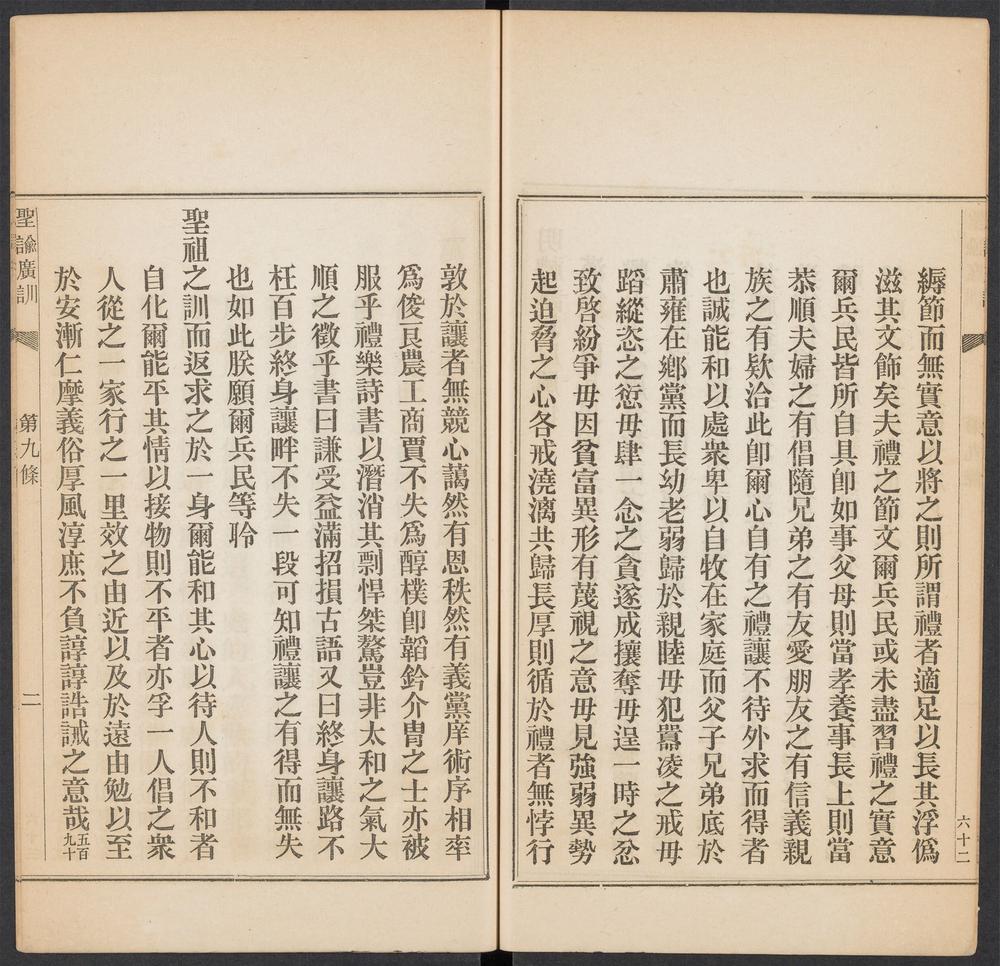 縟節而無實意以將之則所謂禮者適足以長其浮僞
滋其文飾矣夫禮之節文爾兵民或未盡習禮之實意
爾兵民皆所自具卽如事父母則當孝養事長上則當
恭順夫婦之有倡隨兄弟之有友愛朋友之有信義親
族之有欵洽此卽爾心自有之禮讓不待外求而得者
也誠能和以處衆卑以自牧在家庭而父子兄弟底於
肅雍在鄉黨而長幼老弱歸於親睦毋犯囂凌之戒毋
蹈縱恣之愆毋肆一念之貪遂成攘奪毋逞一時之忿
致啓紛爭毋因貧富異形有蔑視之意毋見強弱異勢
起迫脅之心各戒澆漓共歸長厚則循於禮者無悖行
六十二
敦於讓者無競心藹然有恩秩然有義黨庠術序相率
爲俊良農工商賈不失爲醇樸卽韜鈐介冑之士亦被
服乎禮樂詩書以潛消其剽悍桀驁豈非太和之氣大
順之徵乎書曰謙受益滿招損古語又曰終身讓路不
枉百步終身讓畔不失一段可知禮讓之有得而無失
也如此朕願爾兵民等聆
聖祖之訓而返求之於一身爾能和其心以待人則不和者
自化爾能平其情以接物則不平者亦孚一人倡之衆
人從之一家行之一里效之由近以及於遠由勉以至
於安漸仁摩義俗厚風淳庶不負諄諄誥誡之意哉五百九十
聖諭廣訓 第九條 二